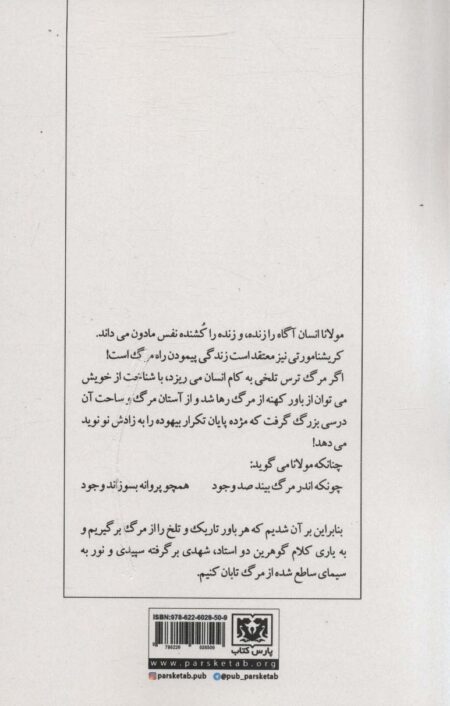 مولانا انسان آگاه را زنده، و زنده را کُشنده نفس مادون می داند.
کریشنامورتی نیز معتقد است زندگی پیمودن راه مرگ است!
اگر مرگ ترس تلخی به کام انسان می ریزد، با شناخت از خویش
می توان از باور کهنه از مرگ رها شد و از آستان مرگ و ساحت آن
درسی بزرگ گرفت که مژده پایان تکرار بیهوده را به زادش نو نوید
می دهد!
چنانکه مولانا می گوید:
چونکه اندر مرگ بیند صد وجود همچو پروانه بسوزاند وجود
بنابراین بر آن شدیم که هر باور تاریک و تلخ را از مرگ برگیریم و
به یاری کلام گوهرین دو استاد، شهدی برگرفته سپیدی و نور به
سیمای ساطع شده از مرگ تابان کنیم.
ISBN: 978-622-6028-50-9
9 786226 028509
پارس کتاب
www.parsketab.org
parsketab.pub @pub_parsketab